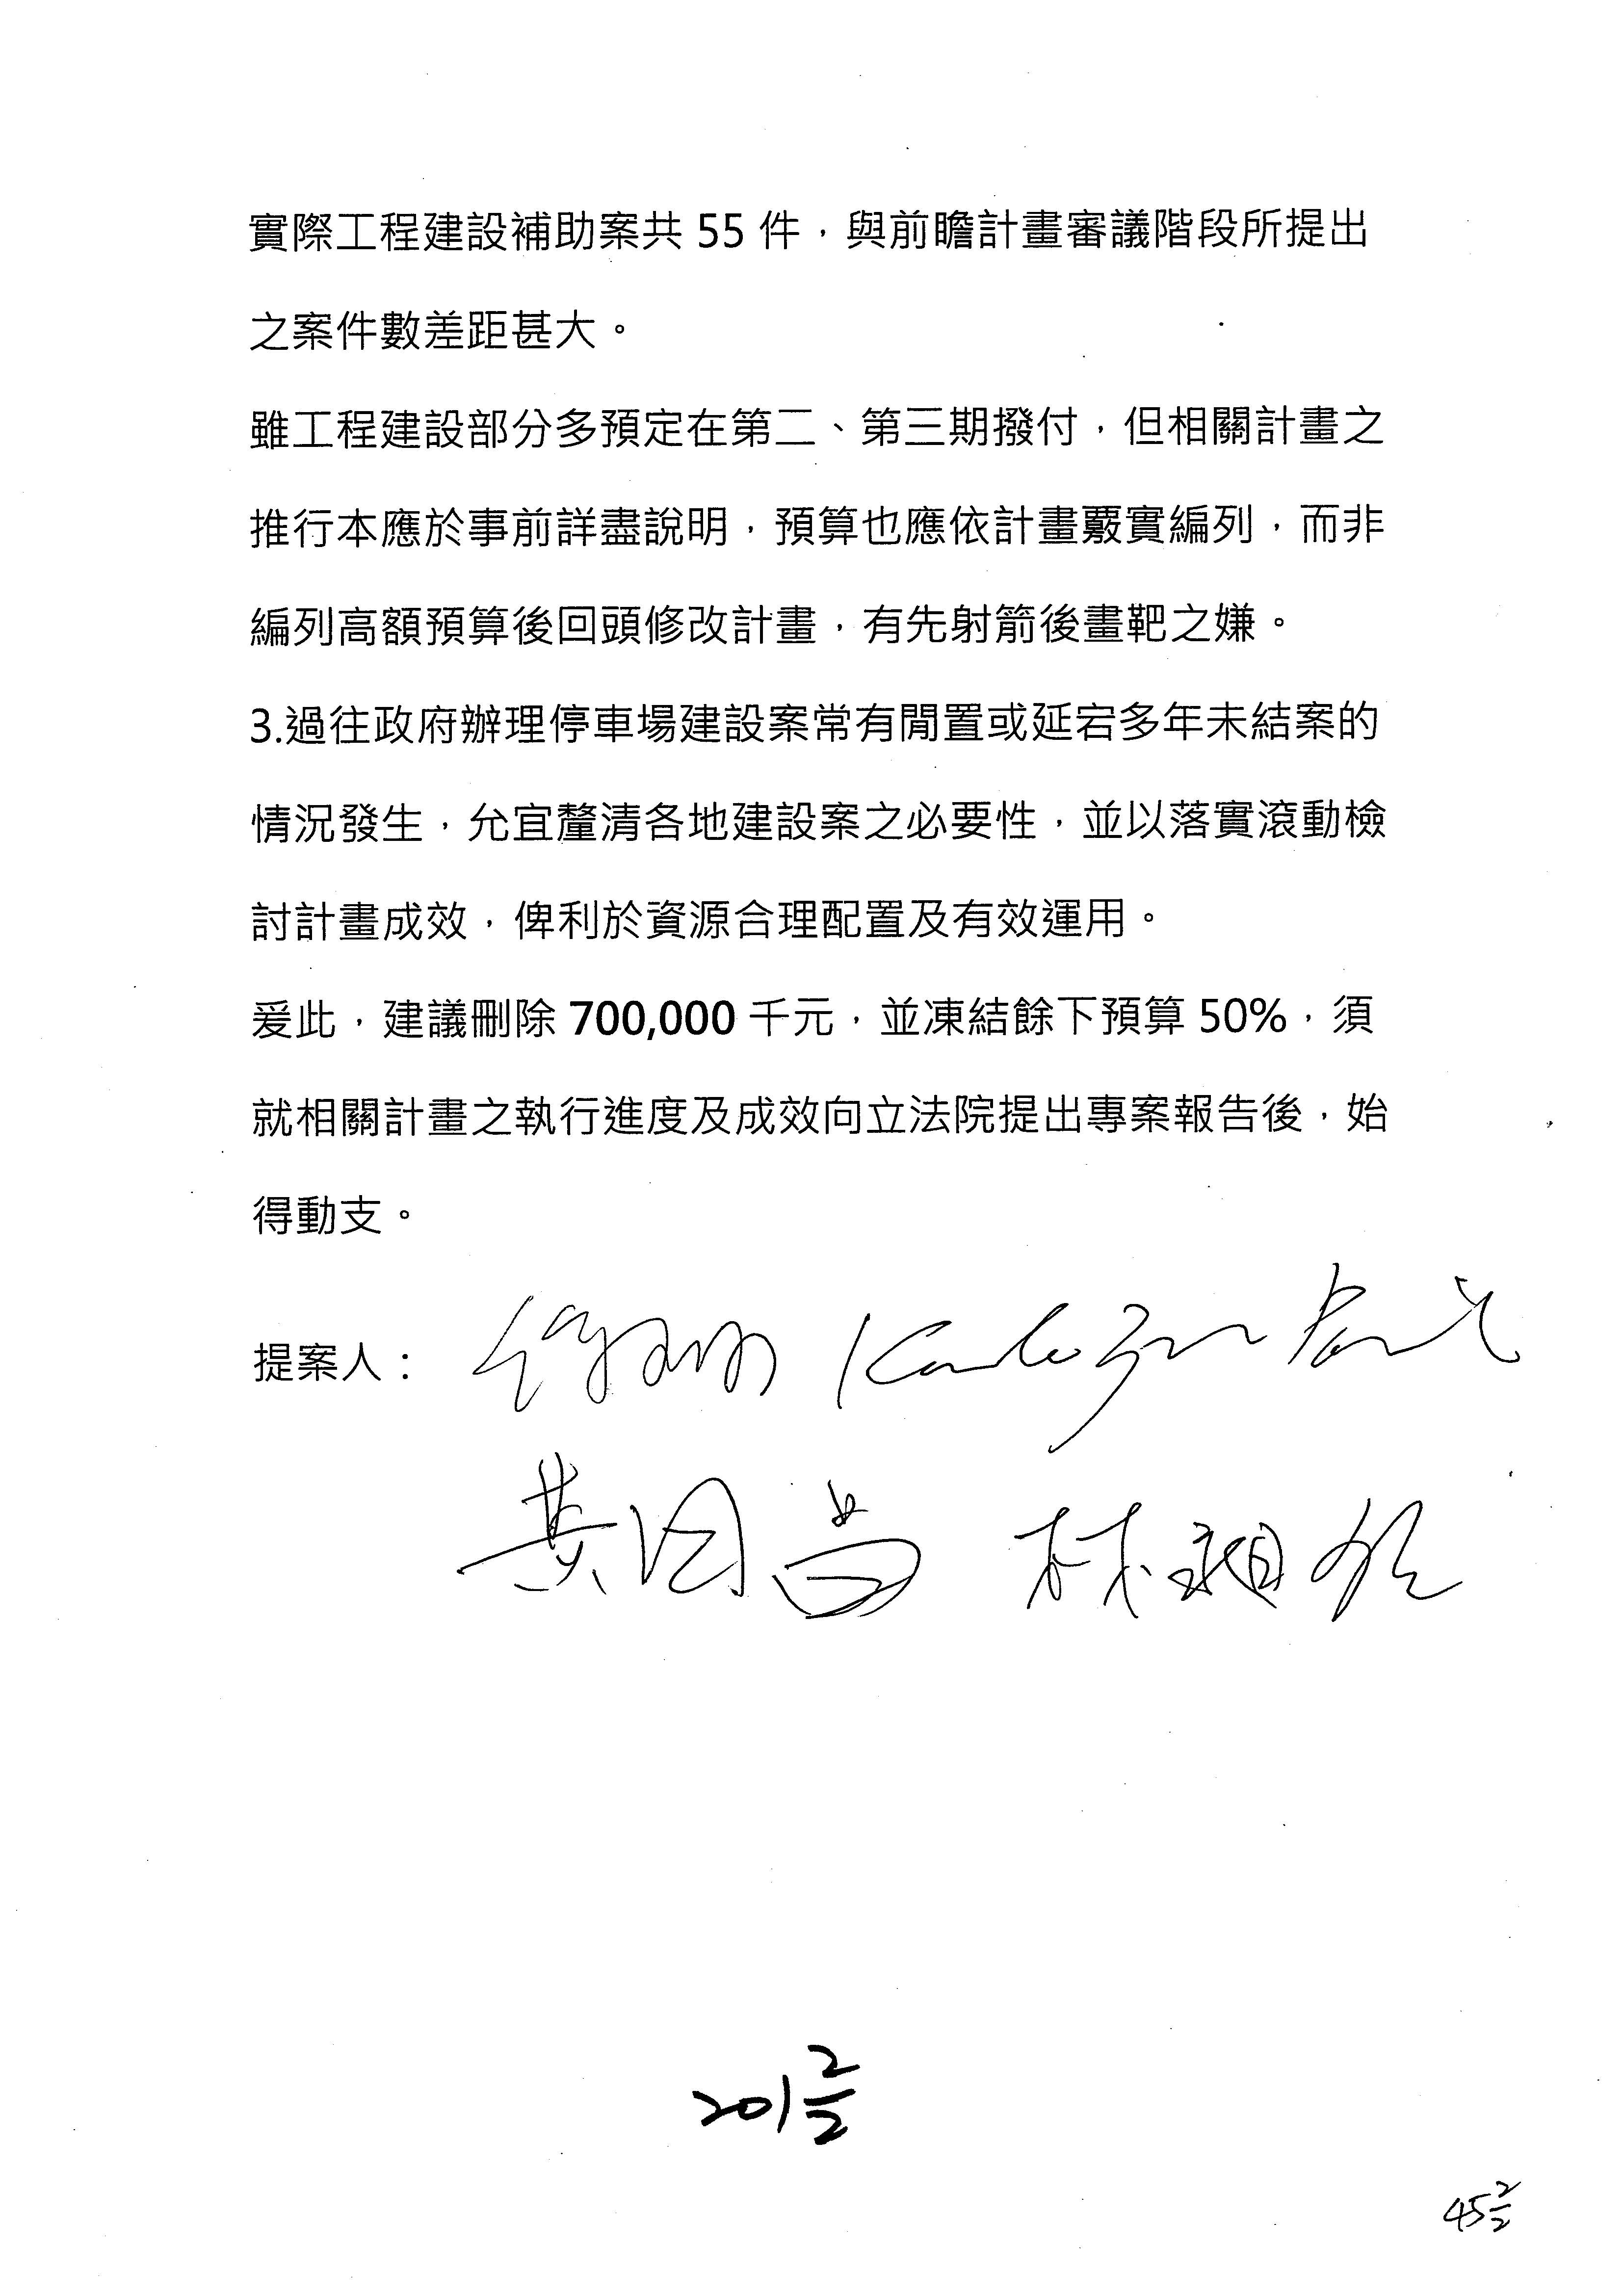 實際工程建設補助案共 55 件，與前瞻計畫審議階段所提出
之案件數差距甚大。
雖工程建設部分多預定在第二、第三期撥付，但相關計畫之
推行本應於事前詳盡說明，預算也應依計畫覈實編列，而非
編列高額預算後回頭修改計畫，有先射箭後畫靶之嫌。
3.過往政府辦理停車場建設案常有閒置或延宕多年未結案的
情況發生，允宜釐清各地建設案之必要性，並以落實滾動檢
討計畫成效，俾利於資源合理配置及有效運用。
爰此，建議刪除 700,000 千元，並凍結餘下預算 50%，須
就相關計畫之執行進度及成效向立法院提出專案報告後，始
得動支。
提案人：
黃國昌 林昶佐
201 2/2
45 2/2